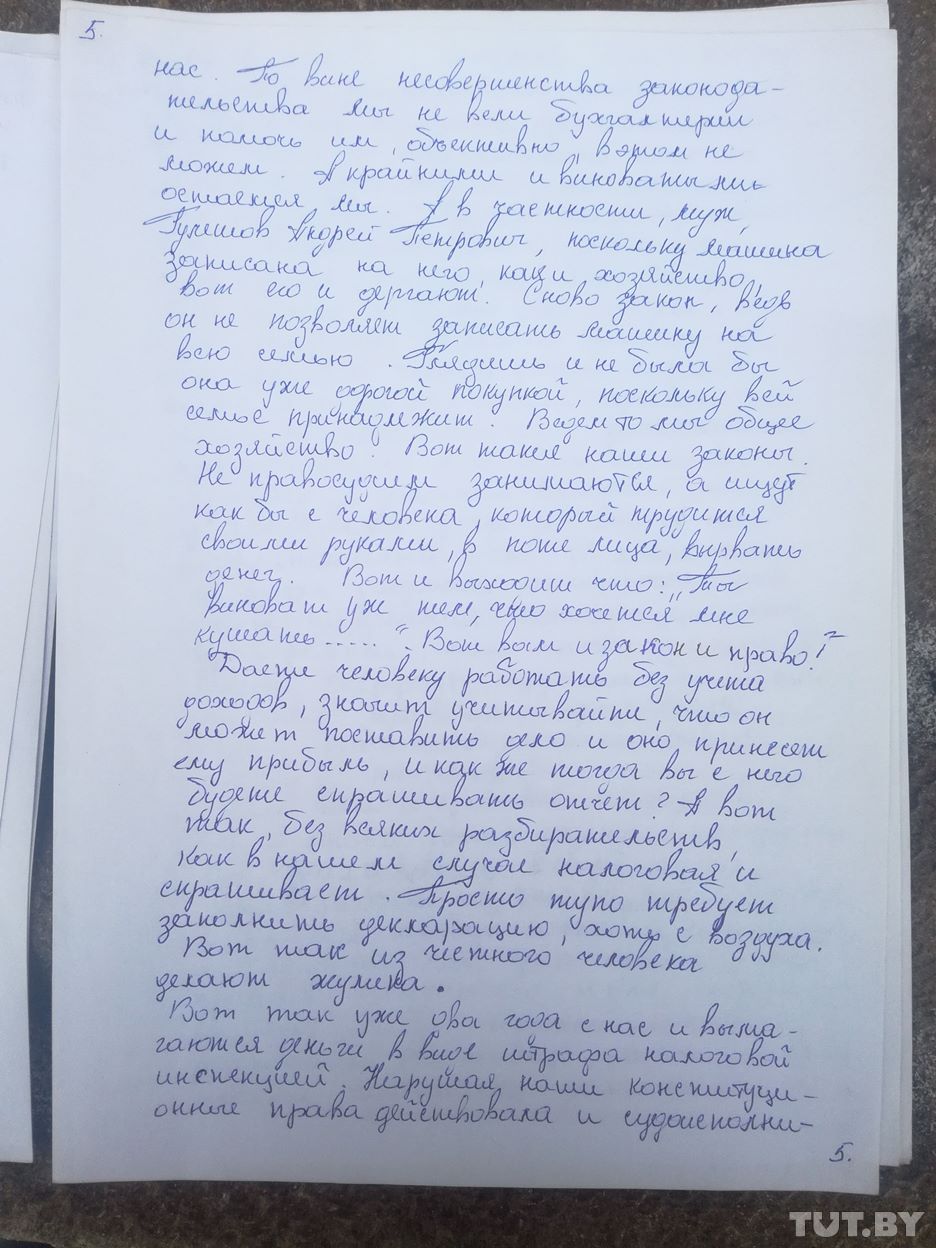 5.
нас. По вине несовершенства законода-
тельства мы не вели бухгалтерии
и помочь им, объективно, в этом не
можем. А крайними и виноватыми
остаемся мы. А в частности, муж,
Гулешов Андрей Петрович, поскольку машина
записана на него, как и хозяйство,
вот его и дергают. Снова закон, ведь
он не позволяет записать машину на
всю семью. Глядишь и не была бы
она уже дорогой покупкой, поскольку всей
семье принадлежит. Ведем то мы общее
хозяйство. Вот такие наши законы.
Не правосудием занимаются, а ищут
как бы с человека, который трудится
своими руками, в поте лица, вырвать
денег. Вот и выходит что: „Ты
виноват уж тем, что хочется мне
кушать.....“. Вот вам и закон и право!?
Дасте человеку работать без учета
доходов, значит учитывайте, что он
может поставить дело и оно принесет
ему прибыль, и как же тогда вы с него
будете спрашивать отчет? А вот
так, без всяких разбирательств,
как в нашем случае налоговая и
спрашивает. Просто тупо требует
заполнить декларацию, хоть с воздуха.
Вот так из честного человека
делают жулика.
Вот так уже два года с нас и вымо-
гаются деньги в виде штрафа налоговой
инспекцией. Нарушая наши конституци-
онные права действовала и судоисполни-
5.
TUT.BY